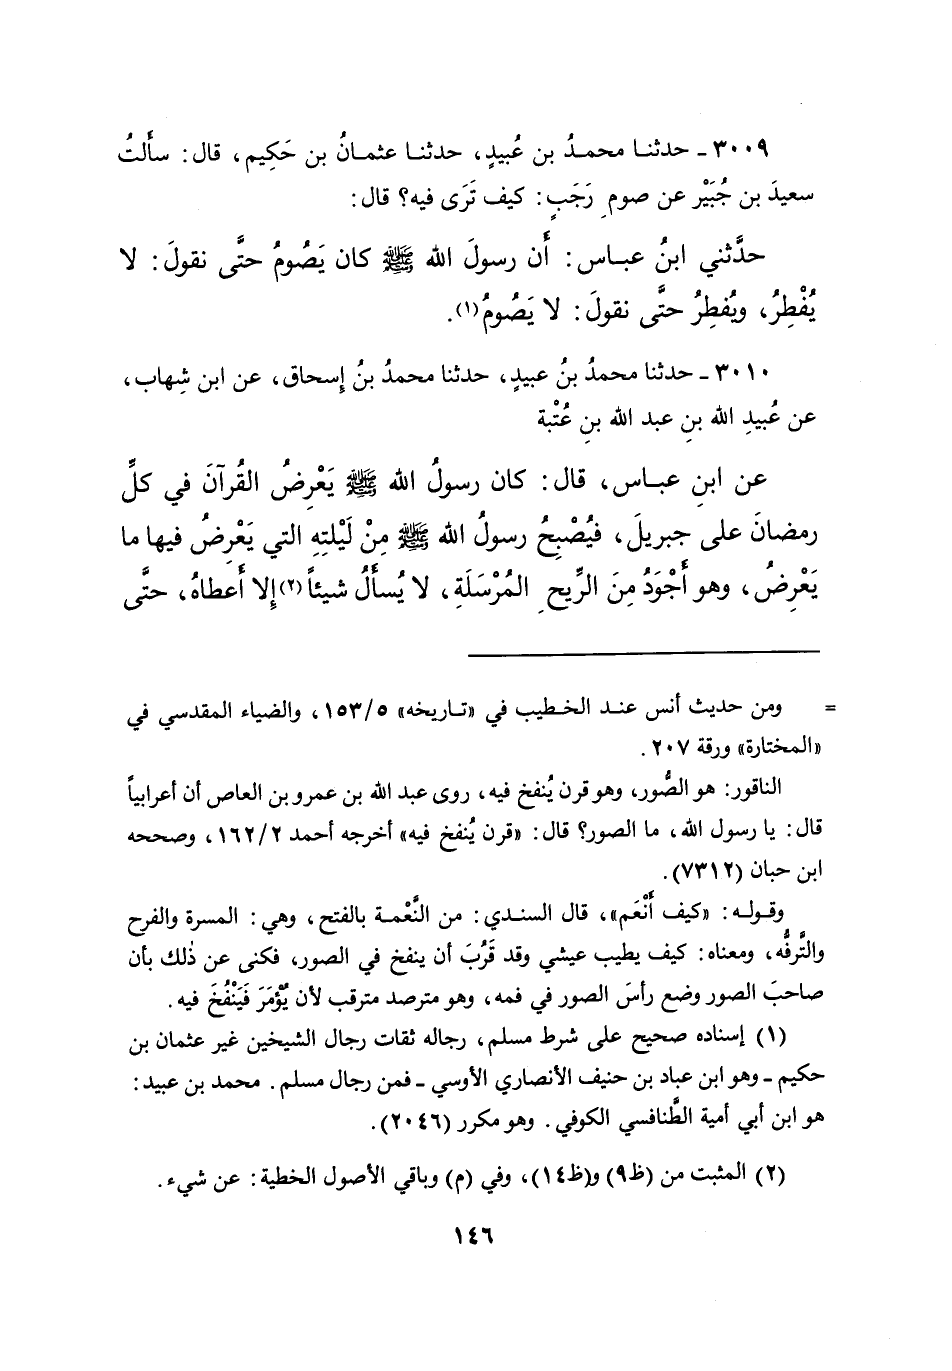 ٣٠٠٩ ـ حدثنا محمدُ بن عُبيدٍ، حدثنا عثمانُ بن حَكيم، قال: سألتُ
سعيدَ بن جُبَيْر عن صوم رَجَبٍ: كيف تَرَى فيه؟ قال:
حدَّثني ابنُ عباس: أَن رسولَ الله ﷺ كان يَصُومُ حتَّى نقولَ: لا
يُفْطِرُ، ويُفطِرُ حتَّى نقولَ: لا يَصُومُ(١).
٣٠١٠ ـ حدثنا محمدُ بنُ عبيدٍ، حدثنا محمدُ بنُ إسحاق، عن ابن شِهاب،
عن عُبيدِ الله بنِ عبد الله بنِ عُتْبة
عن ابنِ عباس، قال: كان رسولُ الله ﷺ يَعْرِضُ القُرآنَ في كلِّ
رمضانَ على جبريلَ، فيُصْبِحُ رسولُ الله ﷺ مِنْ لَيْلتِهِ التي يَعْرِضُ فيها ما
يَعْرِضُ، وهو أَجْوَدُ مِنَ الرِّيحِ المُرْسَلَةِ، لا يُسأَلُ شيئاً(٢) إلا أَعطاهُ، حتَّى
= ومن حديث أنس عند الخطيب في «تاريخه» ١٥٣/٥، والضياء المقدسي في
«المختارة» ورقة ٢٠٧.
الناقور: هو الصُّور، وهو قرن يُنفخ فيه، روى عبد الله بن عمرو بن العاص أن أعرابياً
قال: يا رسول الله، ما الصور؟ قال: «قرن يُنفخ فيه» أخرجه أحمد ١٦٢/٢، وصححه
ابن حبان (٧٣١٢).
وقوله: «كيف أَنْعَم»، قال السندي: من النَّعْمة بالفتح، وهي: المسرة والفرح
والتَّرفُّه، ومعناه: كيف يطيب عيشي وقد قَرُبَ أن ينفخ في الصور، فكنى عن ذٰلك بأن
صاحبَ الصور وضع رأسَ الصور في فمه، وهو مترصد مترقب لأن يُؤْمَرَ فَيَنْفُخَ فيه.
(١) إسناده صحيح على شرط مسلم، رجاله ثقات رجال الشيخين غير عثمان بن
حكيم ـ وهو ابن عباد بن حنيف الأنصاري الأوسي ـ فمن رجال مسلم. محمد بن عبيد:
هو ابن أبي أمية الطَّنافسي الكوفي. وهو مكرر (٢٠٤٦).
(٢) المثبت من (ظ٩) و(ظ١٤)، وفي (م) وباقي الأصول الخطية: عن شيء.
١٤٦